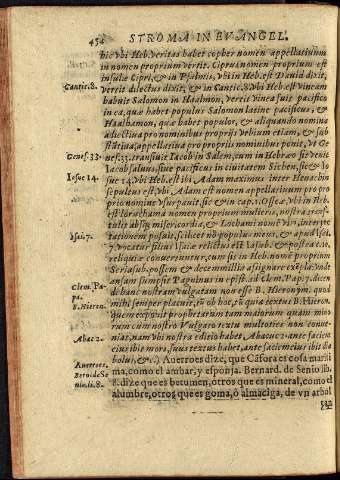 456 STROMA IN EVANGEL.
hic vbi Heb. veritas habet copher nomen appellatiuum
in nomen proprium vertit. Cipri nomen proprium est
insulæ Cipri, & in Psalmis, vbi in Heb. est Dauid dixit,
Cantic. 8.
vertit dilectus dixit, & in Cantic. 8. Vbi Heb. est vineam
habuit Salomon in Haalmon, vertit vinea fuit pacifico
in ea, quæ habet populos Salomon latine pacificus, &
Haalbamon, quæ habet populos, & aliquando nomina
adiectiua pro nominibus proprijs vel etiam, & sub
stātiua, appellatiua pro proprijs nominibus ponit, vt Ge
Genes. 33.
nes. 33. transiuit Iacob in Salem, cum in Hebræo sit venit
Iacob saluus, siue pacificus in ciuitatem Sichen, sic & Io
Iosue 14.
sue 14. vbi Heb. est ibi Adam maximus inter Henachin
sepultus est, vbi Adam est nomen appellatiuum pro pro
prio nomine vsurpauit, sic & in cap. 1. Oseæ, vbi in Heb.
est lo ruchama nomen proprium mulieris, nostra trans
tulit absq; misericordia, & Lo hami nomē viri, interpre
Ysai. 7.
tationem posuit, scilicet populus meus, & apud Isai.
7. vocatur filius Isaiæ relictus est Iasub, & postea c. 10.
reliquiæ conuertuntur, cum sis in Heb. nomē proprium
Seriasub. possem & decem millia assignare exēpla: vnde
Clem. Pa-
pa.
ansam sumpsit Paguinus in præfat. ad Clem. Pap. 7. dicen
di hanc nostram vulgatam non esse B. Hieronym. quod
8. Hiero.
mihi semper placuit, tū ob hoc, tū quia textus B. Hieron.
quem exposuit prophetarum tam maiorum quam mino
rum cum nostro Vulgato textu multoties non conue-
Abac 2.
niat, nam vbi nostra editio habet Abacuc 2. ante facie
eius ibit mors, suus textus habet, ante faciem eius ibit dia
bolus, &c.) Auerroes dize, que Cāfora es cosa mariti
Auerroes.
ma, como el ambar, y esponja. Bernard. de Senio lib.
Bern. de Se
nio. li. 8.
8. dize que es betumen, otros que es mineral, como el
alumbre, otros que es goma, ò almaciga, de vn arbol